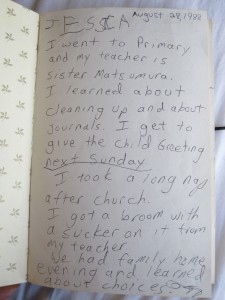 JESSICA August 28, 1988
I went to Primary
and my teacher is
Sister Matsumura.
I learned about
cleaning up and about
journals. I get to
give the child Greeting
next Sunday
I took a long nap
after church.
I got a broom with
a sucker on it from
my teacher.
We had family home
evening and learned
about choices